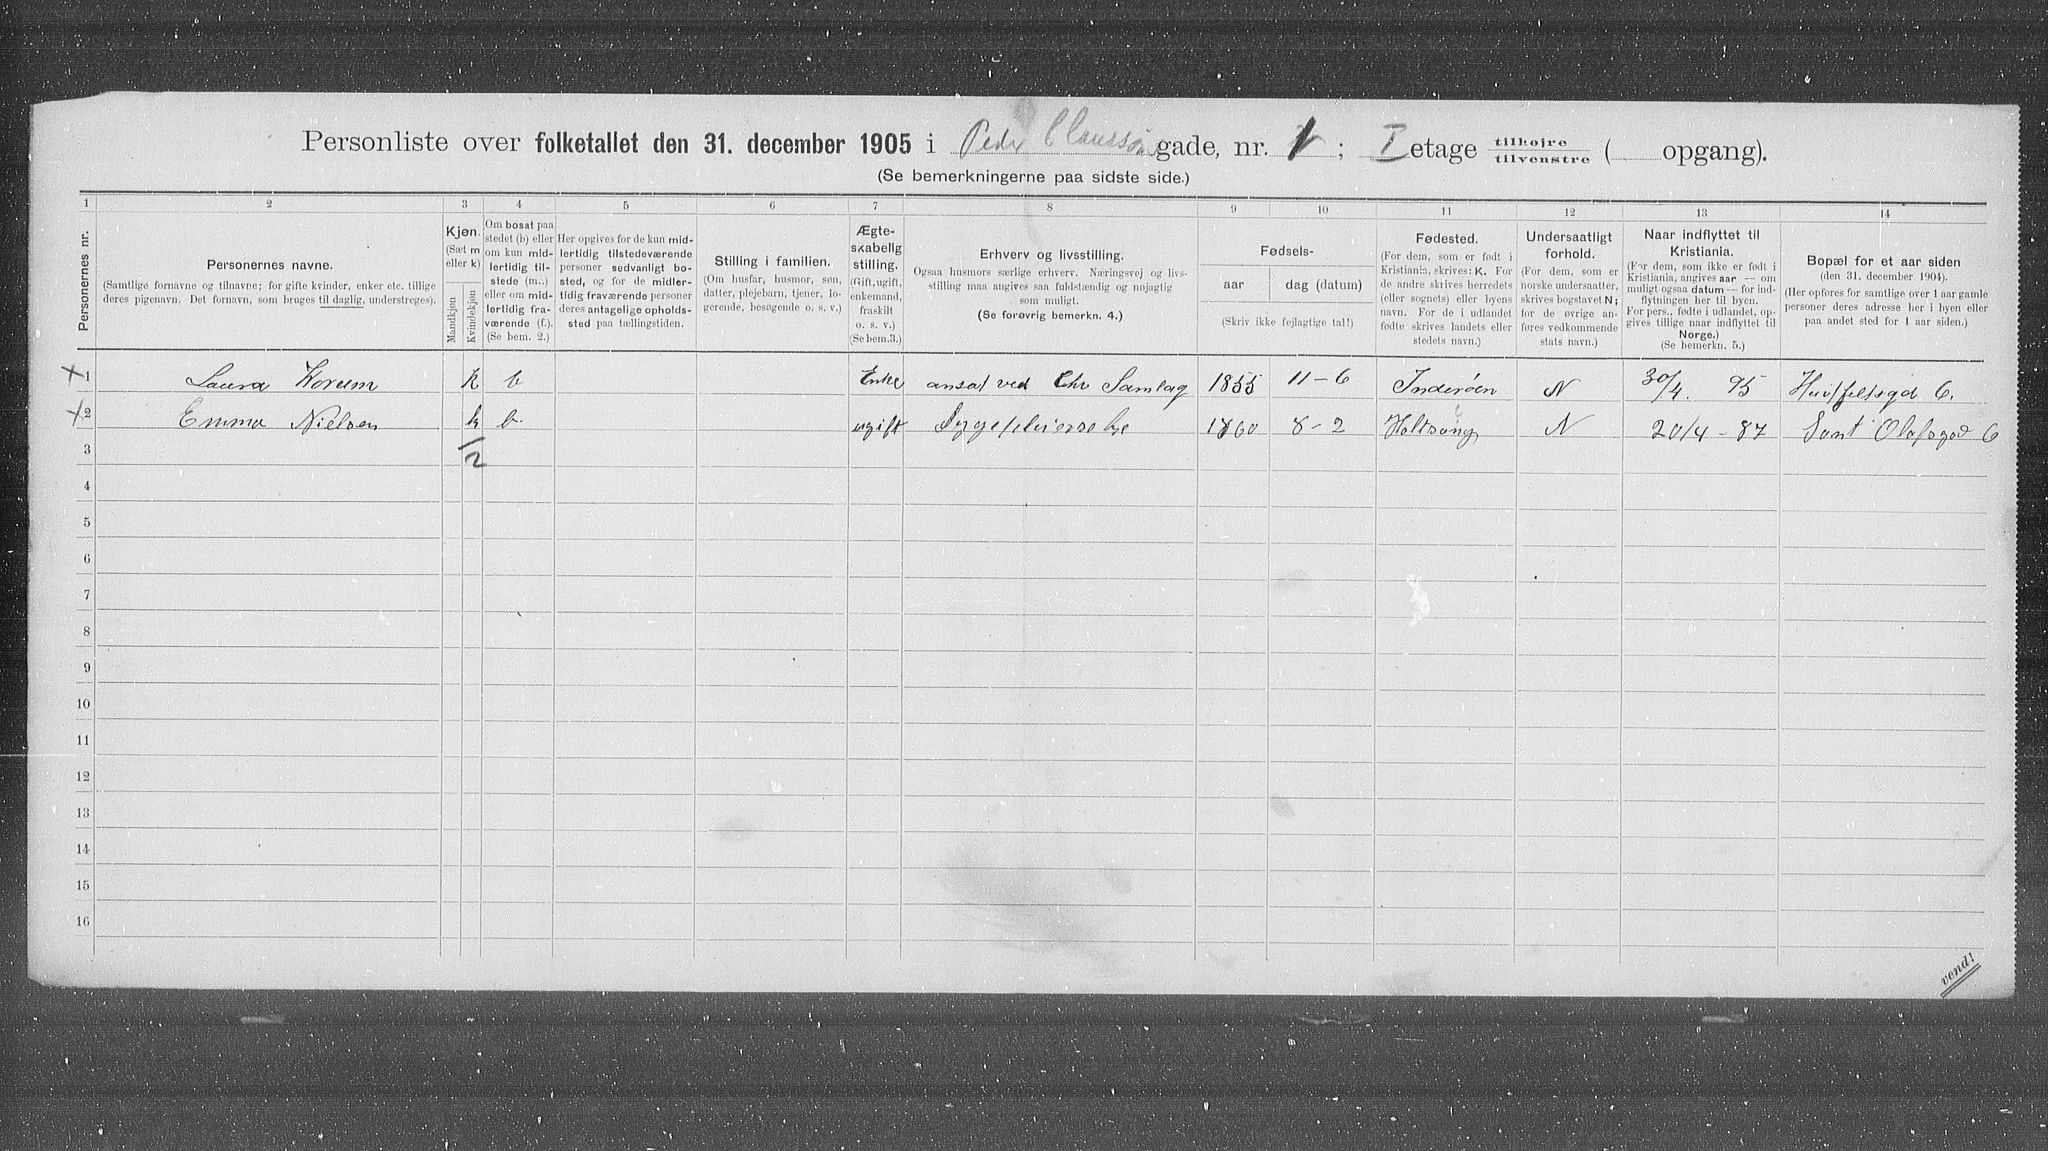 Personliste over folketallet den 31. december 1905 i Peder Claussøns gade, nr. 1 ; I etage tilhøjre tilvenstre ( opgang).
(Se bemerkningerne paa sidste side.)
1 2 3 4 5 6 7 8 9 10 11 12 13 14
Personernes nr.
Personernes navne.
(Samtlige fornavne og tilnavne; for gifte kvinder, enker etc. tillige
deres pigenavn. Det fornavn, som bruges til daglig, understreges).
Kjøn.
(Sæt m
eller k)
Mandkjøn
Kvindekjøn
Om bosat paa
stedet (b) eller
om kun mid-
lertidig til-
stede (m..)
eller om mid-
lertidig fra-
værende (f.).
(Se bem. 2.)
Her opgives for de kun mid-
lertidig tilstedeværende
personer sedvanligt bo-
sted, og for de midler-
tidig fraværende personer
deres antagelige opholds-
sted paa tællingstiden.
Stilling i familien.
(Om husfar, husmor, søn,
datter, plejebarn, tjener, lo-
gerende, besøgende o. s. v.)
Ægte-
skabelig
stilling.
(Gift, ugift,
enkemand,
fraskilt
o. s. v.)
(Se bem.3.)
Erhverv og livsstilling.
Ogsaa husmors særlige erhverv. Næringsvej og livs-
stilling maa angives saa fuldstændig og nøjagtig
som muligt.
(Se forøvrig bemerkn. 4.)
Fødsels-
aar dag (datum)
(Skriv ikke fejlagtige tal!)
Fødested.
(For dem, som er født i
Kristiania, skrives: K. For
de andre skrives herredets
(eller sognets) eller byens
navn. For de i udlandet
fødte skrives landets eller
stedets navn.)
Undersaatligt
forhold.
(For dem, som er
norske undersaatter,
skrives bogstavet N;
for de øvrige an-
føres vedkommende
stats navn.)
Naar indflyttet til
Kristiania.
(For dem, som ikke er født i
Kristiania, angives aar — om
muligt ogsaa datum — for ind-
flytningen her til byen.
For pers., fødte i udlandet, op-
gives tillige naar indflyttet til
Norge.)
(Se bemerkn. 5.)
Bopæl for et aar siden
(den 31. december 1904).
(Her opføres for samtlige over 1 aar gamle
personer deres adresse her i byen eller
paa andet sted for 1 aar siden.)
x 1 Laura Korum k b Enke ansat ved Chr Samlag 1855 11-6 Inderøen N 30/4. 95 Huitfelsgd 6.
x 2 Emma Nielsen k b ugift Sygepleierske 1860 8-2 Holtsøng N 20/4-87 Sant Olafsgad 6
3 /2
4
5
6
7
8
9
10
11
12
13
14
15
16
vend!